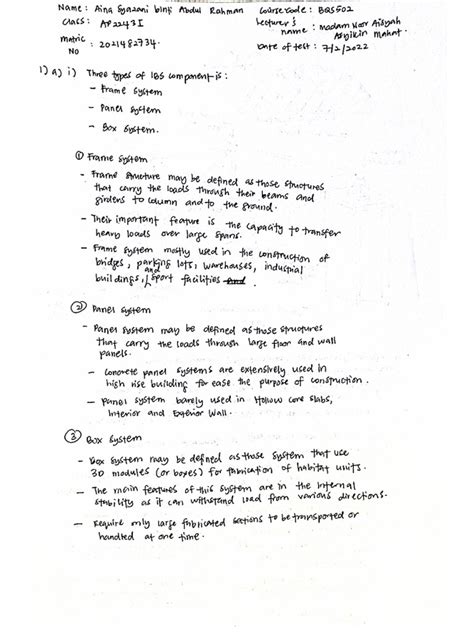 Name : Aina Syazani binti Abdul Rahman
Course code : BQS502
Class : AP2243I
Lecturer's name : madam Noor Aisyah Asyikin mahat.
matric NO : 2021482734.
Date of test : 7/2/2022
1) a) i) Three types of IBS component is :
- Frame system
- Panel system
- Box system.
① Frame system
- Frame structure may be defined as those structures
that carry the loads through their beams and
girders to column and to the ground.
- Their important feature is the capacity to transfer
heavy loads over large spans.
- Frame system mostly used in the construction of
bridges, parking lots, warehouses, industrial
buildings, and sport facilities
② Panel system
- Panel system may be defined as those structures
that carry the loads through large floor and wall
panels.
- Concrete panel systems are extensively used in
high rise building for ease the purpose of construction.
- Panel system barely used in Hollow core slabs,
Interior and Exterior Wall.
③ Box system
- Box system may be defined as those system that use
3D modules (or boxes) for fabrication of habitat units.
- The main features of this system are in the internal
stability as it can withstand load from various directions.
- Require only large fabricated sections to be transported or
handled at one time.